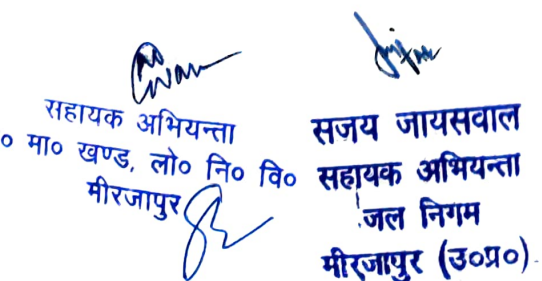 सहायक अभियन्ता
० मा० खण्ड, लो० नि० वि०
मीरजापुर
सजय जायसवाल
सहायक अभियन्ता
जल निगम
मीरजापुर (उ०प्र०)